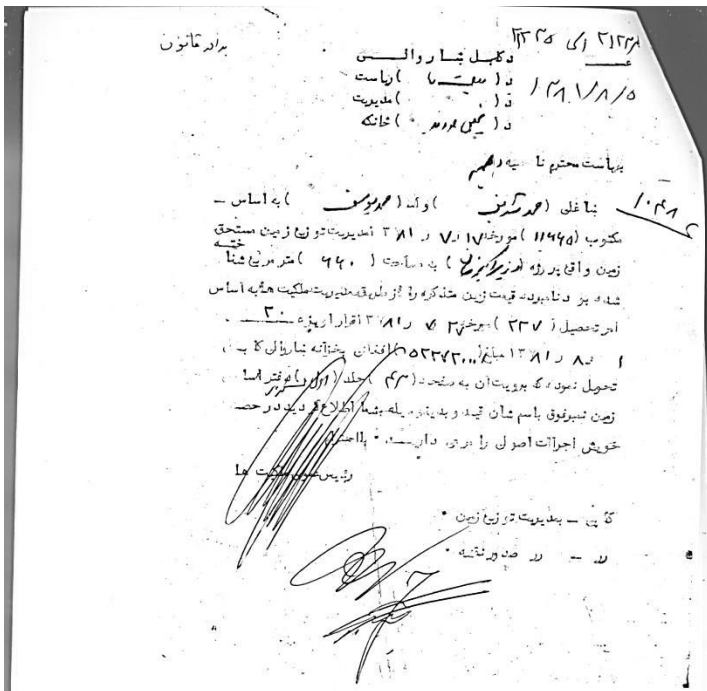 برادر قانون
د کابل ښاروالی
د ( ملکیت ها ) ریاست
د ( ) مدیریت
د ( ) څانګه
۱۳۸۱/۸/۵
بریاست محترم ناحیه دهم
۱۰۴۸
ښاغلی ( ) ولد ( محمد یوسف ) به اساس –
مکتوب (۱۱۹۶۵) مورخه ۱۷ ر ۷ ر ۱۳۸۱ مدیریت توزیع زمین مستحق
زمین واقع پروژه وزیر اکبرخان به مساحت ( ۶۶۰ ) متر مربع شناخته
شده بر دنامبرده قیمت زمین متذکره را از طریق مدیریت ملکیت ها به اساس
امر تحصیل ( ۲۲۷ ) مورخه ۲۷ ر ۷ ر ۱۳۸۱ قرار آویزه ۲۰
ر ۸ ر ۱۳۸۱ مبلغ ( ) افغانی بخزانه ښاروالی کابل
تحویل نموده که برویت آن به صفحه ( ۴۳ ) جلد ( اول ) دفتر اساس
زمین نمبر فوق باسم شان قید و بدینوسیله بشما اطلاع گردید در حصه
خویش اجراات اصولی را مرعی دارید. بااحترام
رئیس عمومی ملکیت ها
کاپی – بمدیریت توزیع زمین .
رر – رر صدور نقشه .